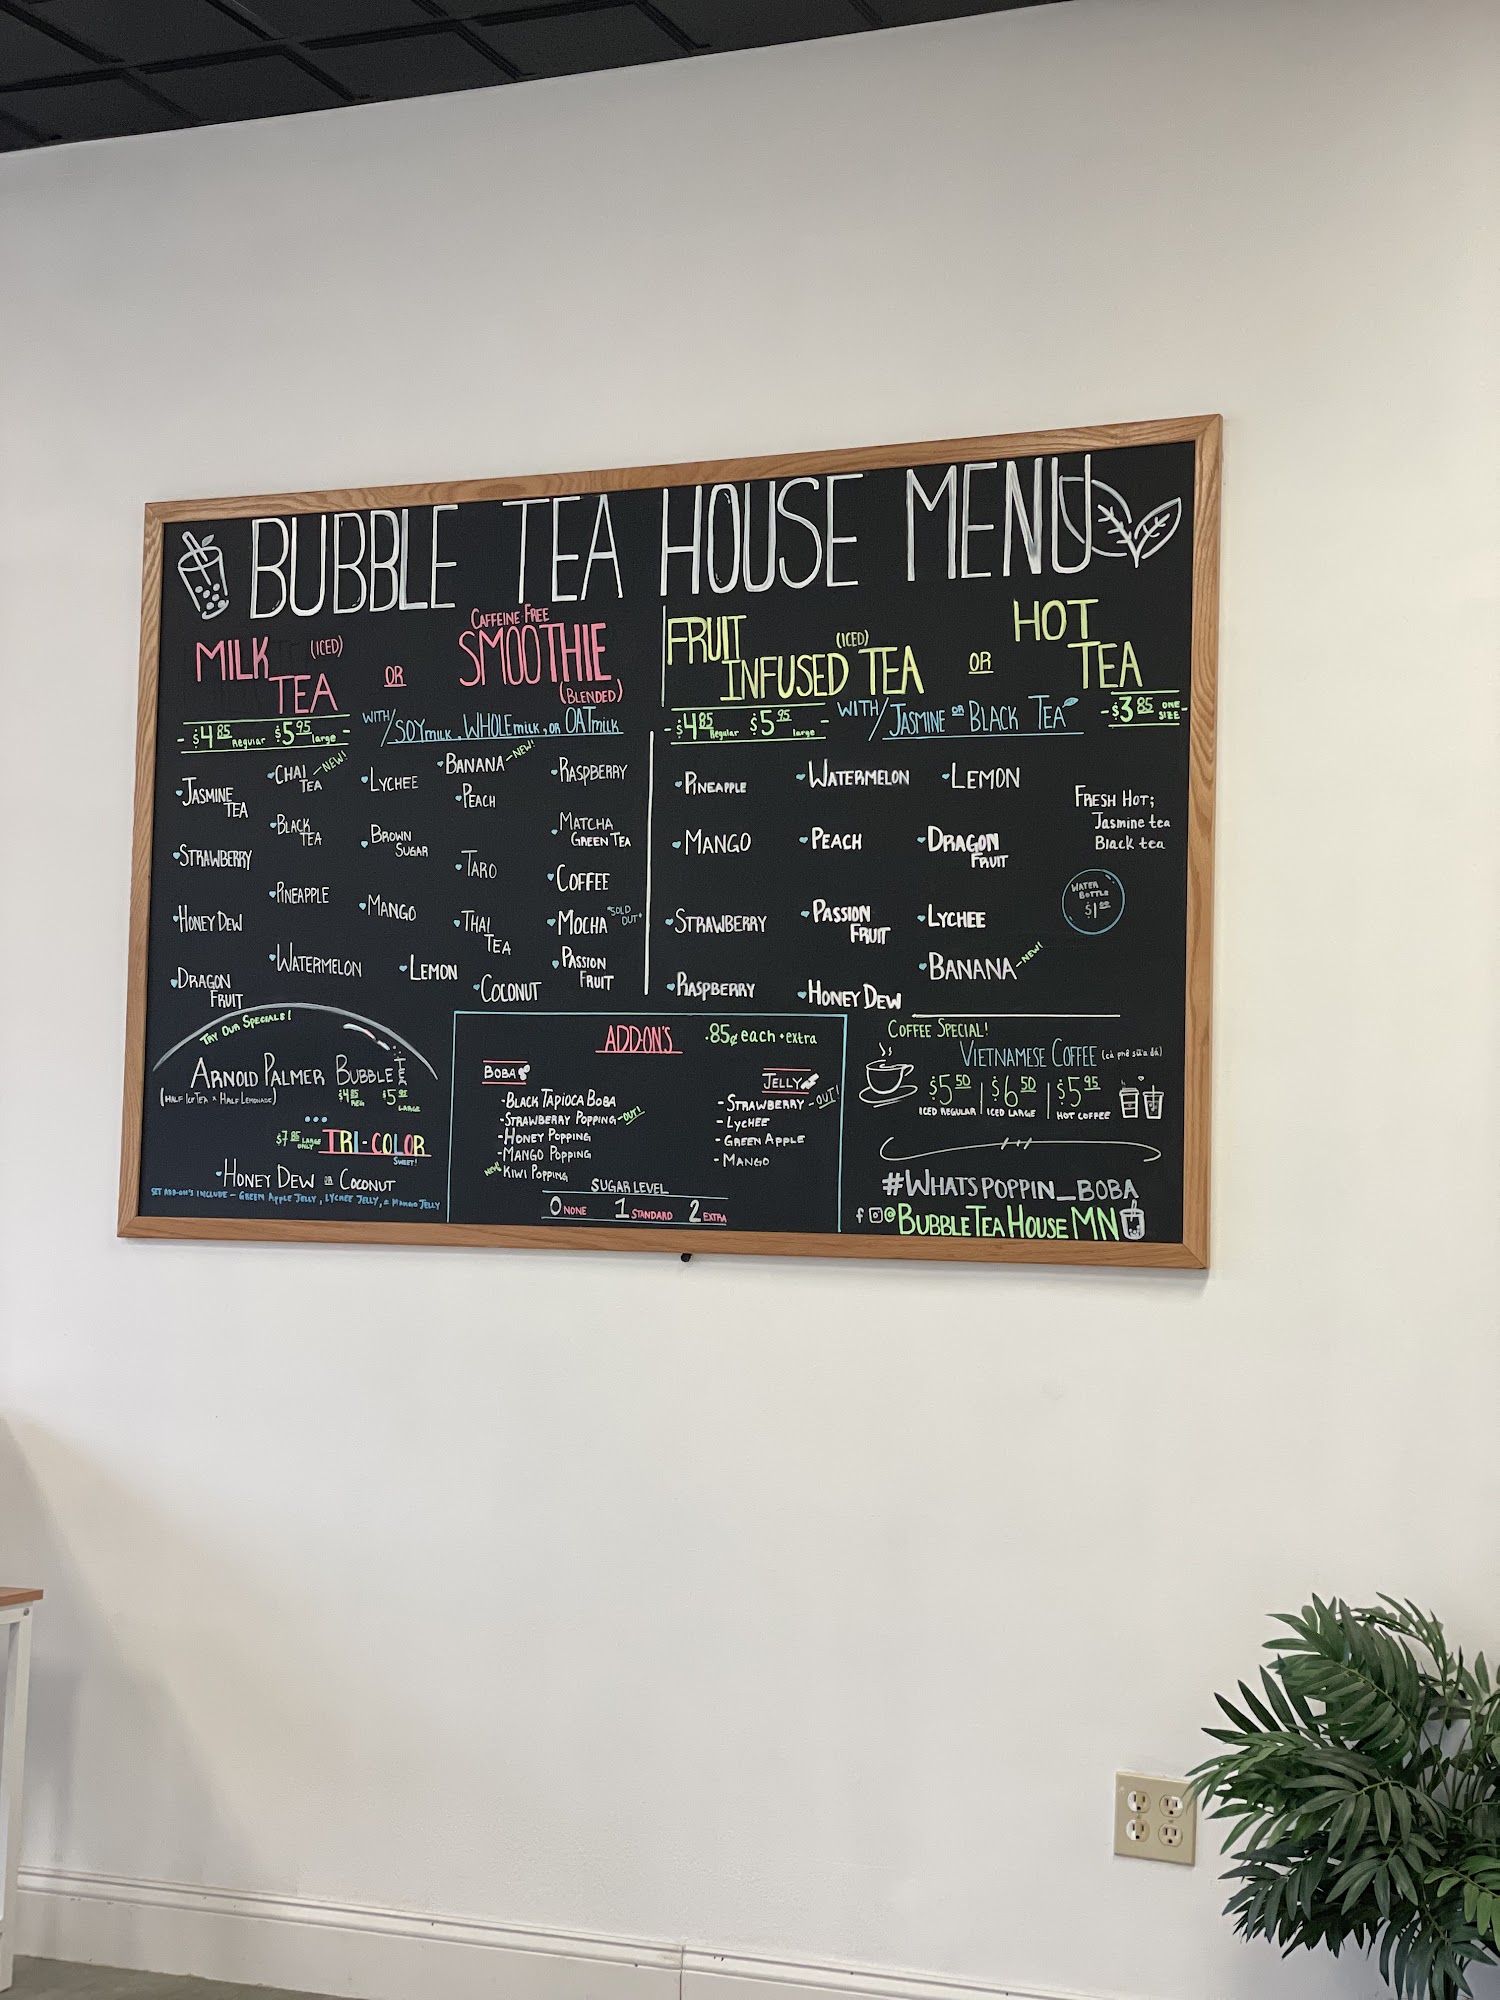 BUBBLE TEA HOUSE MENU
MILK TEA (ICED)
OR
CAFFEINE-FREE
SMOOTHIE
(BLENDED)
- $4.85 Regular $5.95 large -
WITH/SOY milk, WHOLE milk, OR OAT milk
JASMINE TEA
STRAWBERRY
HONEY DEW
DRAGON FRUIT
CHAI TEA - NEW!
BLACK TEA
PINEAPPLE
WATERMELON
LYCHEE
BROWN SUGAR
MANGO
LEMON
BANANA - NEW!
PEACH
TARO
THAI TEA
COCONUT
RASPBERRY
MATCHA GREEN TEA
COFFEE
MOCHA "SOLD OUT"
PASSION FRUIT
FRUIT INFUSED TEA (ICED)
OR
HOT TEA
- $4.85 Regular $5.95 large -
WITH/JASMINE OR BLACK TEA
- $3.85 ONE SIZE -
PINEAPPLE
MANGO
STRAWBERRY
RASPBERRY
WATERMELON
PEACH
PASSION FRUIT
HONEY DEW
LEMON
DRAGON FRUIT
LYCHEE
BANANA - NEW!
FRESH HOT;
Jasmine tea
Black tea
WATER BOTTLE $1.00
TRY OUR SPECIALS!
ARNOLD PALMER BUBBLE TEA
(HALF ICE TEA x HALF LEMONADE)
$4.85 REG $5.95 LARGE
$7.85 LARGE ONLY TRI-COLOR
SWEET!
HONEY DEW OR COCONUT
SET ADD-ON'S INCLUDE - GREEN APPLE JELLY, LYCHEE JELLY, & MANGO JELLY
ADD-ON'S .85¢ each • extra
BOBA
- BLACK TAPIOCA BOBA
- STRAWBERRY POPPING - OUT!
- HONEY POPPING
- MANGO POPPING
NEW KIWI POPPING
JELLY
- STRAWBERRY - OUT!
- LYCHEE
- GREEN APPLE
- MANGO
SUGAR LEVEL
0 NONE 1 STANDARD 2 EXTRA
COFFEE SPECIAL!
VIETNAMESE COFFEE (cà phê sữa đá)
$5.50 ICED REGULAR | $6.50 ICED LARGE | $5.95 HOT COFFEE
#WHATSPOPPIN_BOBA
@BUBBLETEAHOUSEMN